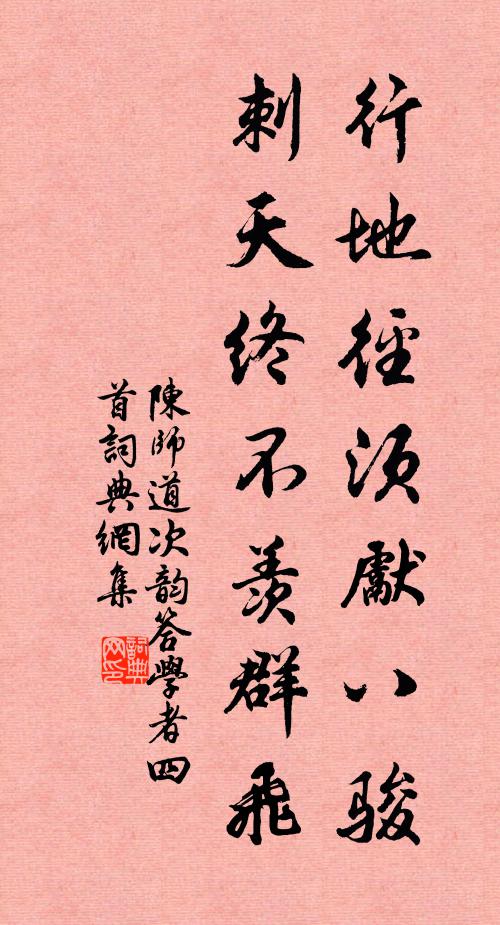 行地徑須獻八駿
刺天終不羨群飛
陳師道次韵答學者四
首詞典網集
詞典
网印